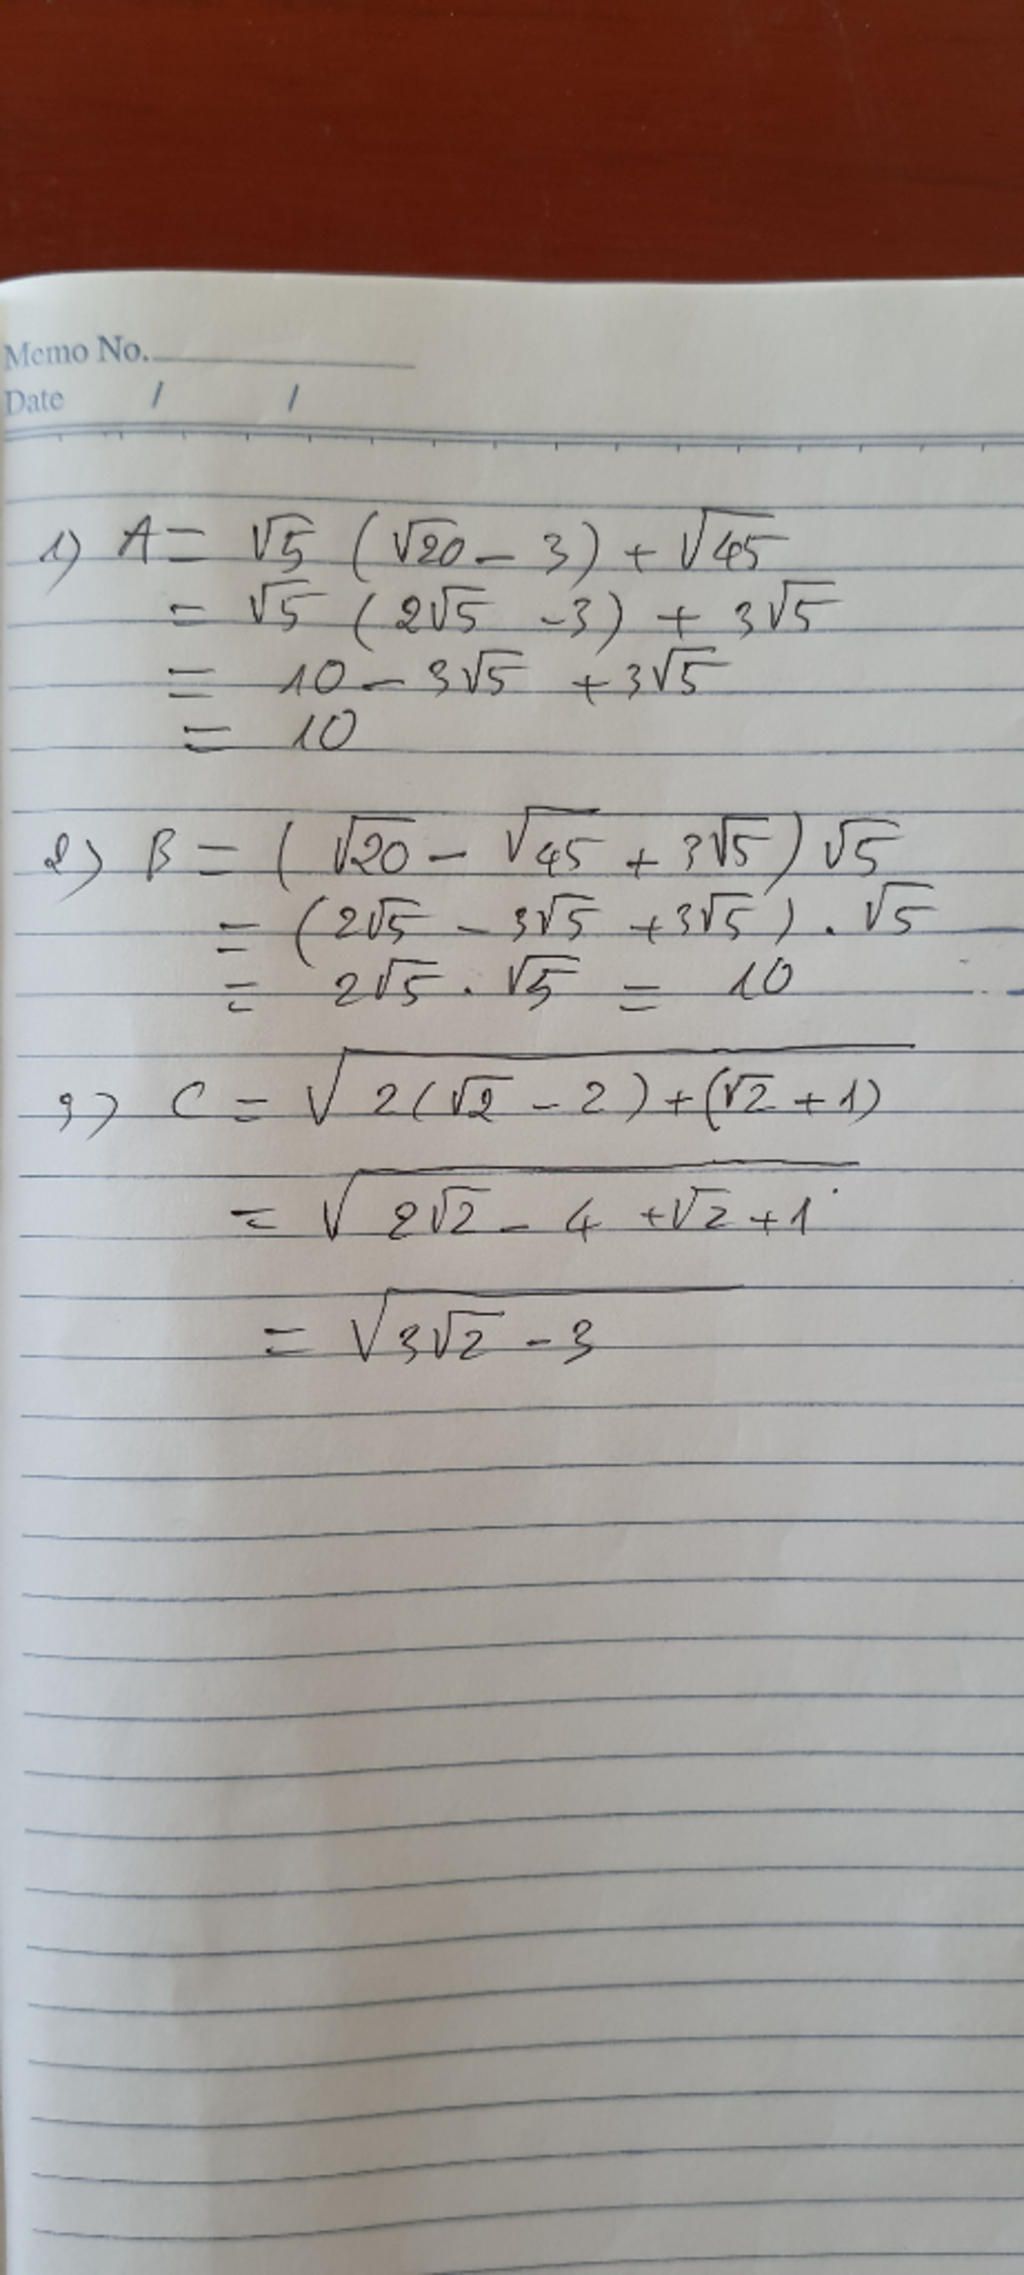 Memo No.
Date / /
1) A = √5 (√20 - 3) + √45
= √5 (2√5 - 3) + 3√5
= 10 - 3√5 + 3√5
= 10
2) B = (√20 - √45 + 3√5) √5
= (2√5 - 3√5 + 3√5) . √5
= 2√5 . √5 = 10
3) C = √(2(√2 - 2) + (√2 + 1))
= √(2√2 - 4 + √2 + 1)
= √(3√2 - 3)